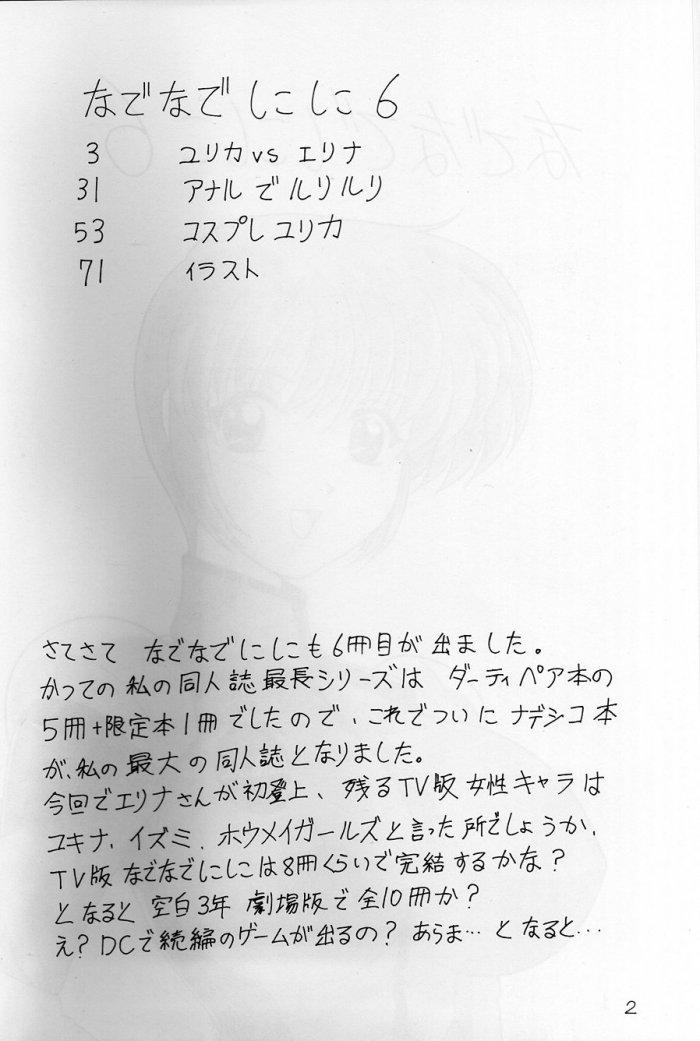 なでなでしこしこ 6
3 ユリカ vs エリナ
31 アナルでルリルリ
53 コスプレユリカ
71 イラスト
さてさて なでなでにしこも6冊目が出ました。
かっての私の同人誌最長シリーズは ダーティペア本の
5冊+限定本1冊でしたので、これでついに ナデシコ本
が、私の最大の同人誌となりました。
今回でエリナさんが初登上、残るTV版女性キャラは
ユキナ、イズミ、ホウメイガールズと言った所でしょうか、
TV版 なでなでにしこは8冊くらいで完結するかな?
となると 空白3年 劇場版で全10冊か?
え?DCで続編のゲームが出るの? あらま…となると…
2